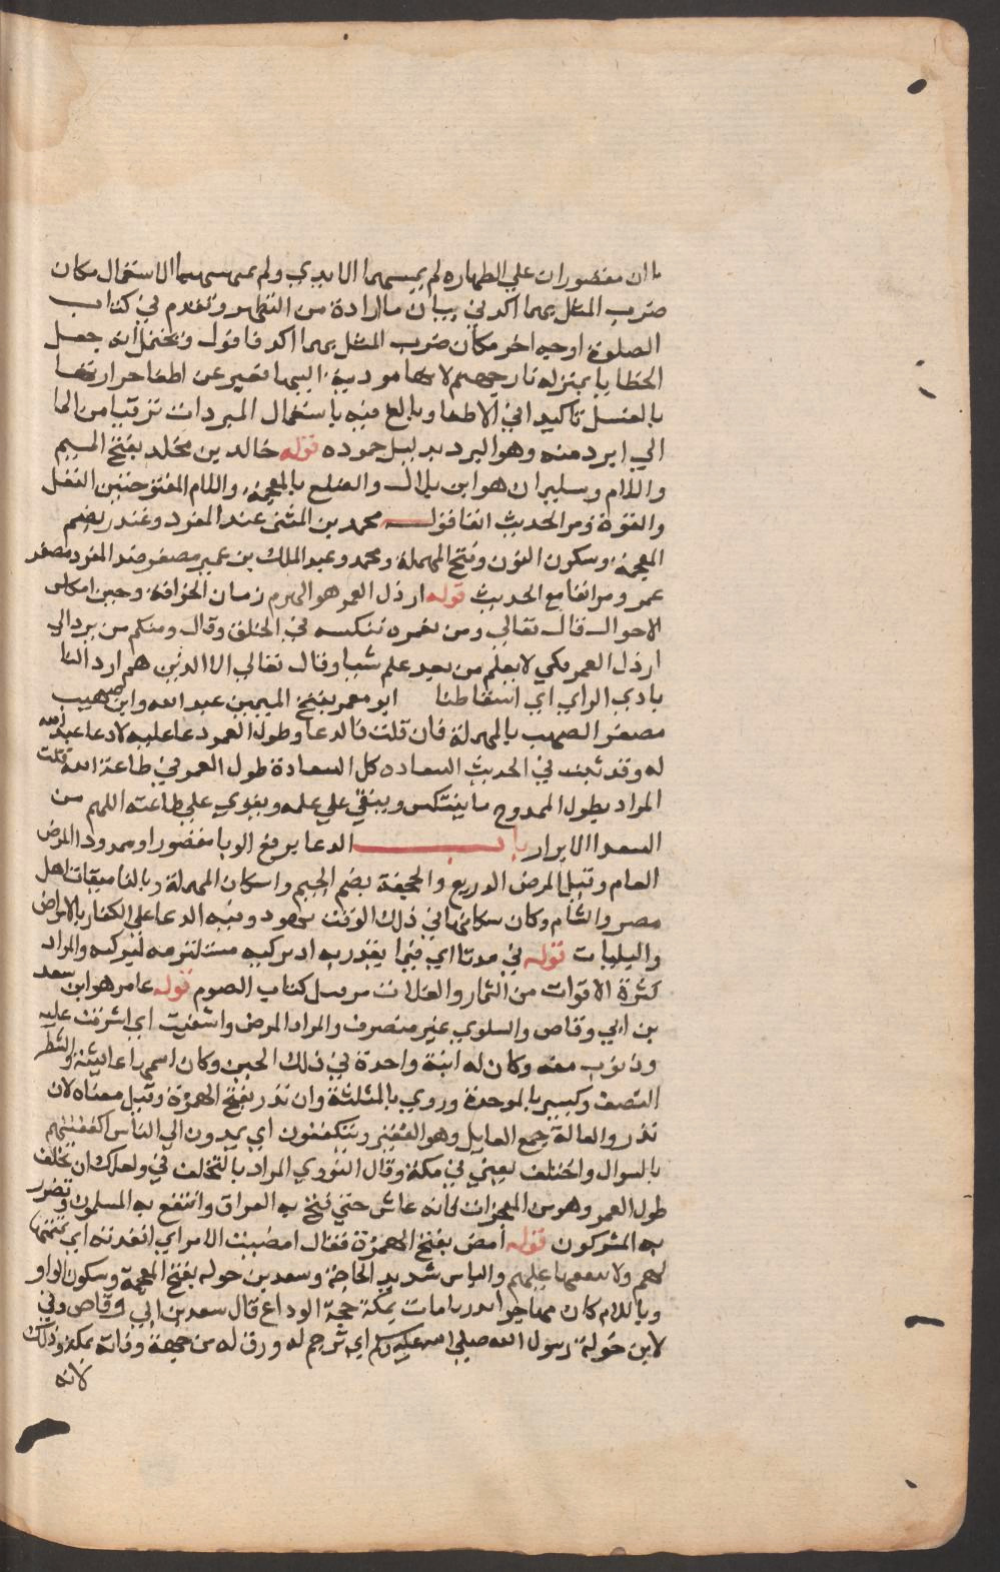 ماان مقصوران علي الطهاره لم يمسهما الايدي ولم يمتهنهما الاستعمال مكان
ضرب المثل بهما اكد في بيان ما اراده من التطهر وتقدم في كتاب
الصلوة اوجه اخر مكان ضرب المثل بهما اكد فاقول ويحتمل انه جعل
الخطايا بمنزلة نار جهنم لانها مودية اليها فعبر عن اطفا حرارتها
بالغسل تاكيدا في الاطفا وبالغ فيه باستعمال المبردات ترقيا من الما
الي ابرد منه وهو البرد بدليل جموده قوله خالد بن مخلد بفتح الميم
واللام وسليمان هو ابن بلال والضلع بالمعجمة واللام المفتوحتين الثقل
والقوة ومر الحديث انفا قوله محمد بن المثنى عند المفرد وغندر بضم
المعجمة وسكون النون وفتح المهملة ومحمد وعبد الملك بن عمير مصغر ضد المفرد مصغر
عمر ومر انفا مع الحديث قوله ارذل العمر هو الهرم زمان الخرافة وحين انكاس
الاحوال قال تعالي ومن نعمره ننكسه في الخلق وقال ومنكم من يرد الي
ارذل العمر لكي لا يعلم من بعد علم شيا وقال تعالي الا الذين هم اراذلنا
بادي الراي اي اسقاطنا ابو معمر بفتح الميمين عبد الله وابن صهيب
مصغر الصهب بالمهملة فان قلت فالدعا وطول العمر دعا عليه لا دعا عبد الله
له وقد ثبت في الحديث السعاده كل السعادة طول العمر في طاعة الله قلت
المراد بطول الممدوح ما ينتكس ويبقي علي علمه ويقوي علي طاعته اللهم من
السعدا الابرار باب الدعا يرفع الوبا مقصورا وممدودا المرض
العام وقيل المرض الذريع والجحفة بضم الجيم واسكان المهملة وبالفا ميقات اهل
مصر والشام وكان سكانها في ذلك الوقت يهود وفيه الدعا علي الكفار بالامراض
والبليات قوله في مدنا اي فيما يقدر به اذ بركته مستلزمه لبركته والمراد
كثرة الاقوات من الثمار والغلات مر سل كتاب الصوم قوله عامر هو ابن سعد
بن ابي وقاص والسلوي غير منصرف والمراد المرض واشفيت اي اشرفت عليه
ودنوت معه وكان له ابنة واحدة في ذلك الحين وكان اسمها عايشة والشطر
النصف وكبير بالموحدة وروي بالمثلثة وان تذر بفتح الهمزة وقيل معناه لان
تذر والعالة جمع العايل وهو الفقير ويتكففون اي يمدون الي الناس اكفهم
بالسوال واختلف يعني في مكة وقال النووي المراد بالتخلف في ولعلك ان تخلف
طول العمر وهو من المعجزات فانه عاش حتي فتح به العراق وانتفع به المسلمون وتضرر
به المشركون قوله أمض بفتح الهمزة فقال امضيت الامر اي انفدته اي تممتها
لهم ولا تنقصها عليهم والباس شديد الحاجة وسعد بن خوله بفتح المعجمة وسكون الواو
وباللام كان مهاجرا بدريا مات بمكة حجة الوداع قال سعد بن ابي وقاص وفي
لابن خولة رسول الله صلي الله عليه وسلم اي ترحم له ورق له من جهة وفاته بمكة وذلك
لانه